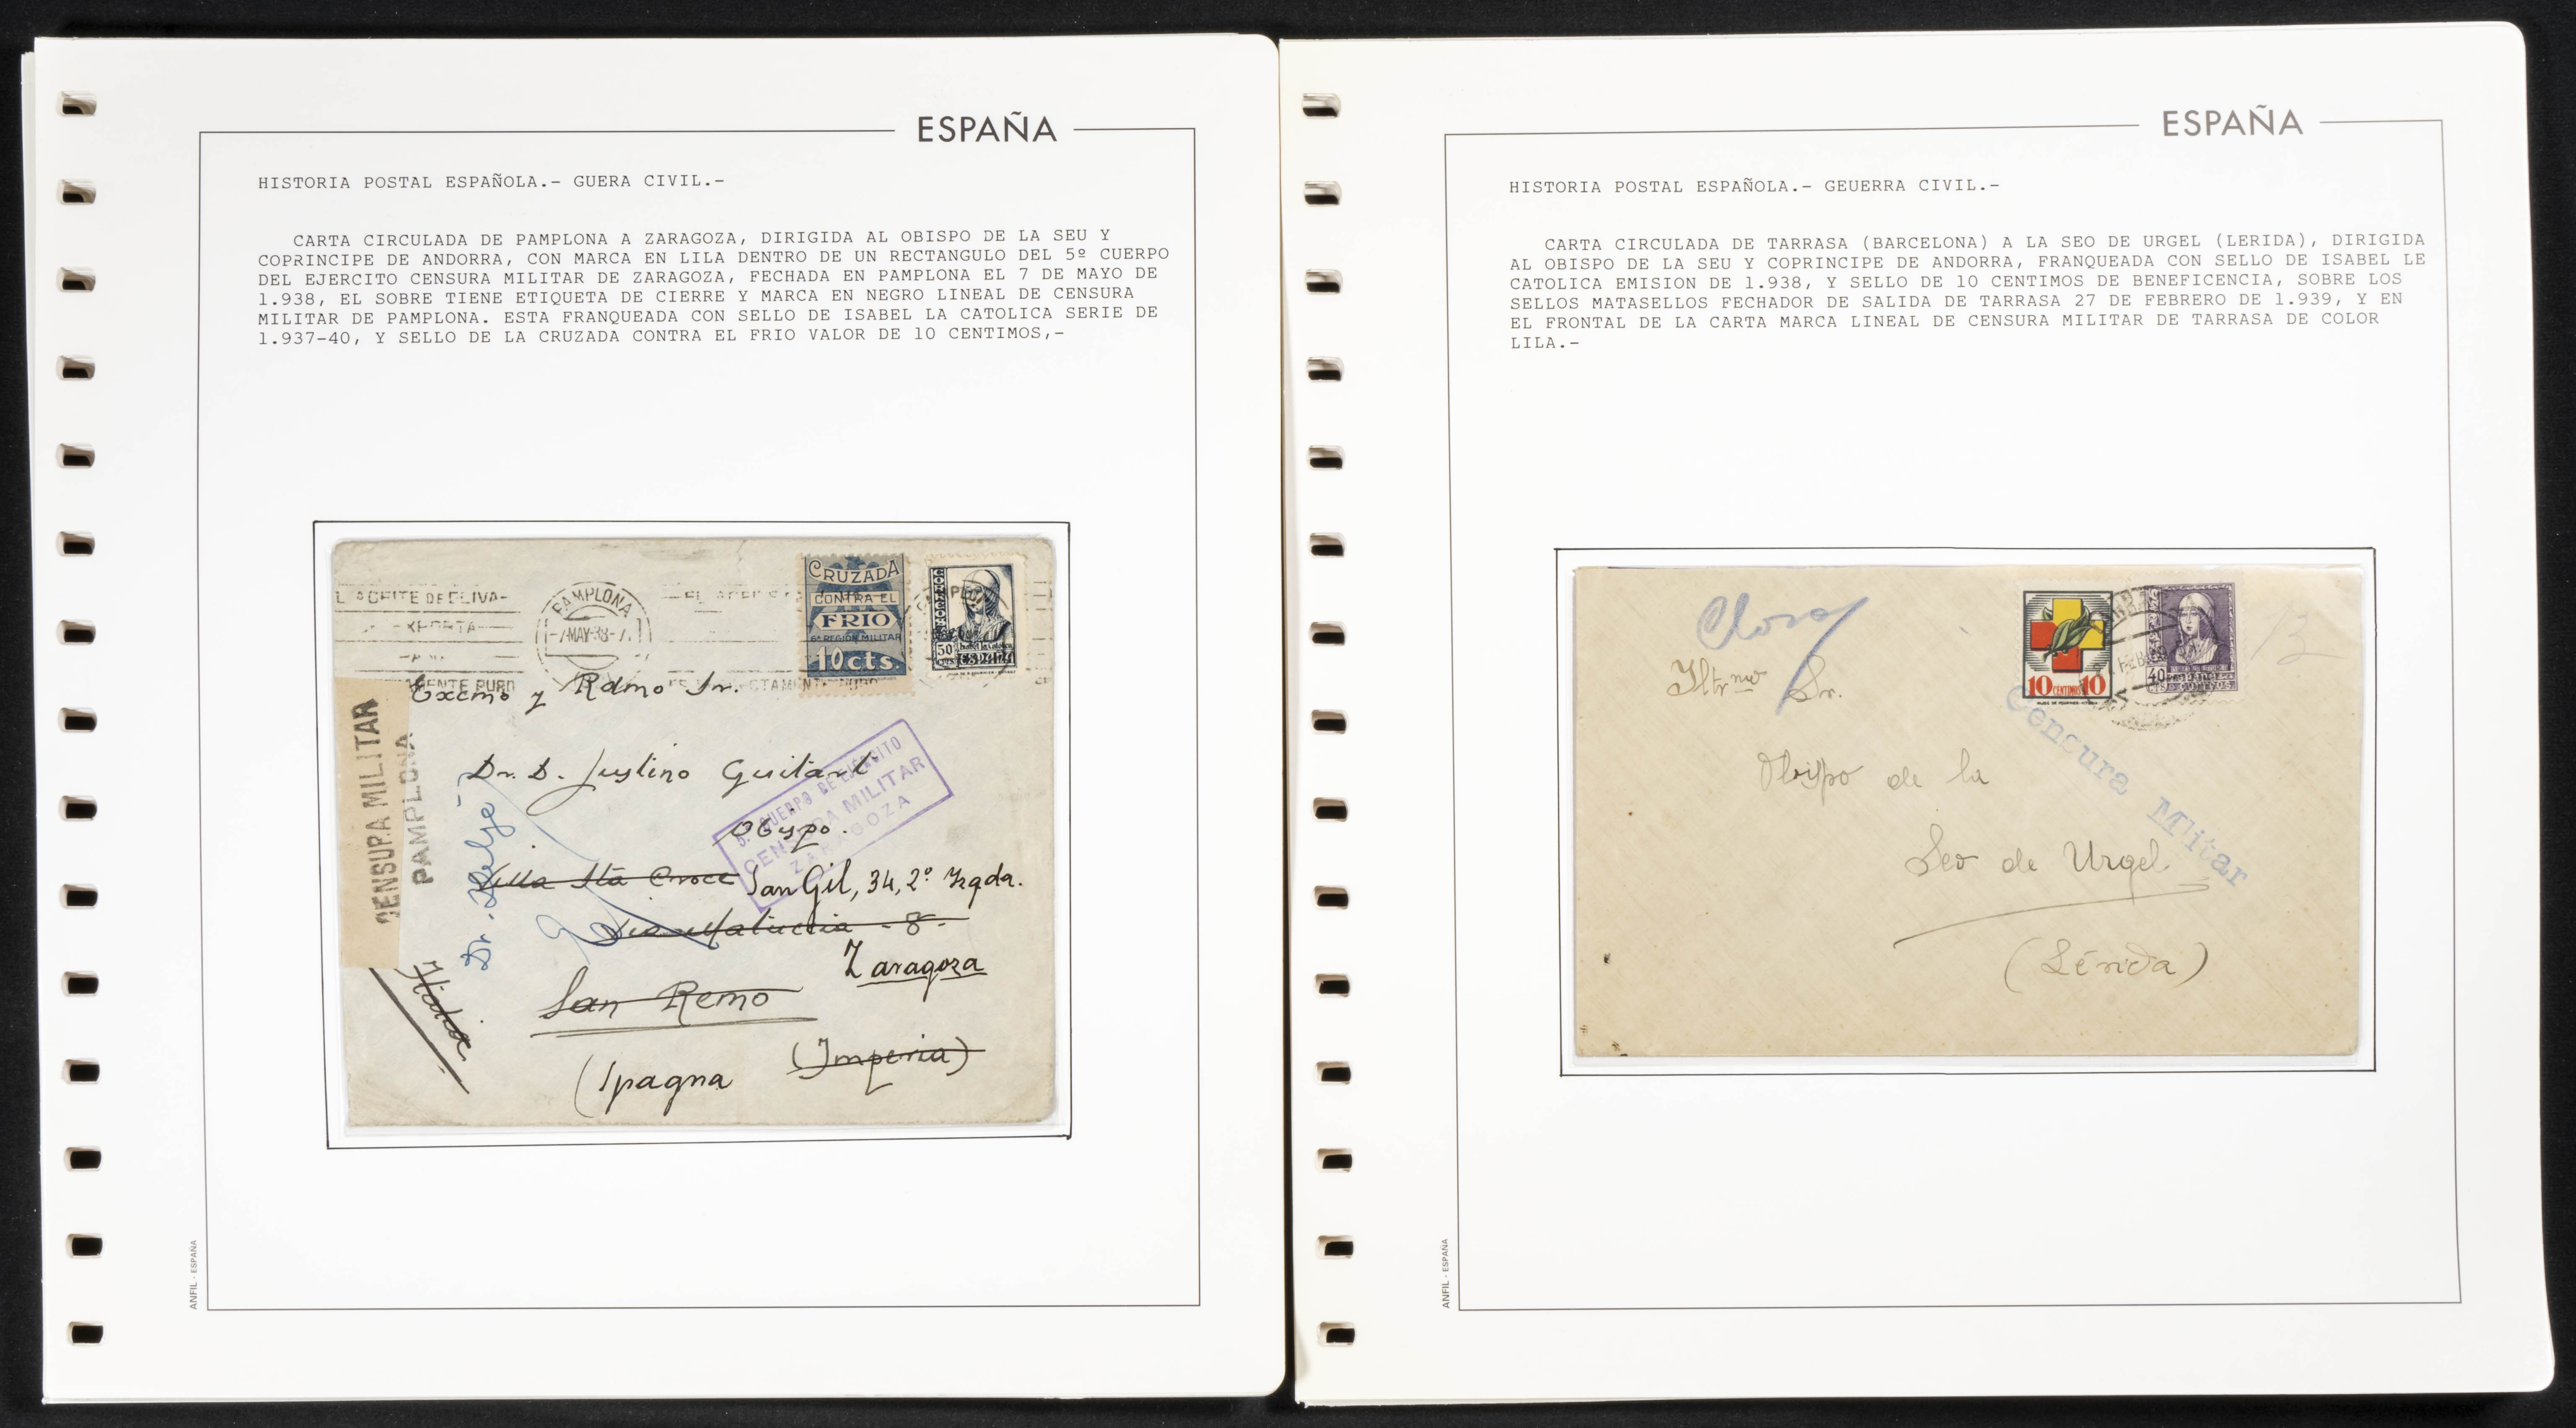 ESPAÑA
HISTORIA POSTAL ESPAÑOLA.- GUERA CIVIL.-
CARTA CIRCULADA DE PAMPLONA A ZARAGOZA, DIRIGIDA AL OBISPO DE LA SEU Y
COPRINCIPE DE ANDORRA, CON MARCA EN LILA DENTRO DE UN RECTANGULO DEL 5º CUERPO
DEL EJERCITO CENSURA MILITAR DE ZARAGOZA, FECHADA EN PAMPLONA EL 7 DE MAYO DE
1.938, EL SOBRE TIENE ETIQUETA DE CIERRE Y MARCA EN NEGRO LINEAL DE CENSURA
MILITAR DE PAMPLONA. ESTA FRANQUEADA CON SELLO DE ISABEL LA CATOLICA SERIE DE
1.937-40, Y SELLO DE LA CRUZADA CONTRA EL FRIO VALOR DE 10 CENTIMOS,-
PAMPLONA
7 MAY 38
CRUZADA
CONTRA EL
FRIO
6ª REGION MILITAR
10 cts.
Isabel la Católica
ESPAÑA
CENSURA MILITAR
PAMPLONA
Excmo y Rdmo Sr.
Dr. D. Justino Guitart
Obispo.
Villa Sta Croce San Gil, 34, 2º Izqda.
8.
Zaragoza
San Remo
(Imperia)
(Spagna
Italia
5. CUERPO DE EJERCITO
CENSURA MILITAR
ZARAGOZA
ANFIL - ESPAÑA
ESPAÑA
HISTORIA POSTAL ESPAÑOLA.- GEUERRA CIVIL.-
CARTA CIRCULADA DE TARRASA (BARCELONA) A LA SEO DE URGEL (LERIDA), DIRIGIDA
AL OBISPO DE LA SEU Y COPRINCIPE DE ANDORRA, FRANQUEADA CON SELLO DE ISABEL LE
CATOLICA EMISION DE 1.938, Y SELLO DE 10 CENTIMOS DE BENEFICENCIA, SOBRE LOS
SELLOS MATASELLOS FECHADOR DE SALIDA DE TARRASA 27 DE FEBRERO DE 1.939, Y EN
EL FRONTAL DE LA CARTA MARCA LINEAL DE CENSURA MILITAR DE TARRASA DE COLOR
LILA.-
10 CENTIMOS 10
40
Iltrmo Sr.
Obispo de la
Seo de Urgel
(Lérida)
Censura Mlitar
ANFIL - ESPAÑA